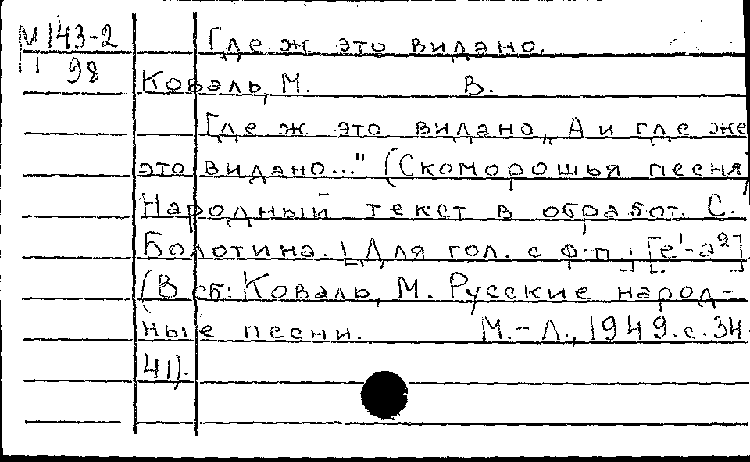 М 143-2 Где ж это видано.
98
Коваль, М. В.
Где ж это видано, „А и где же
это видано..." (Скоморошья песня)
Народный текст в обработ. С.
Болотина. [Для гол. с ф-п.] [e¹-a²]
(В сб: Коваль, М. Русские народ-
ные песни. М.-Л., 1949. с. 34-
41).